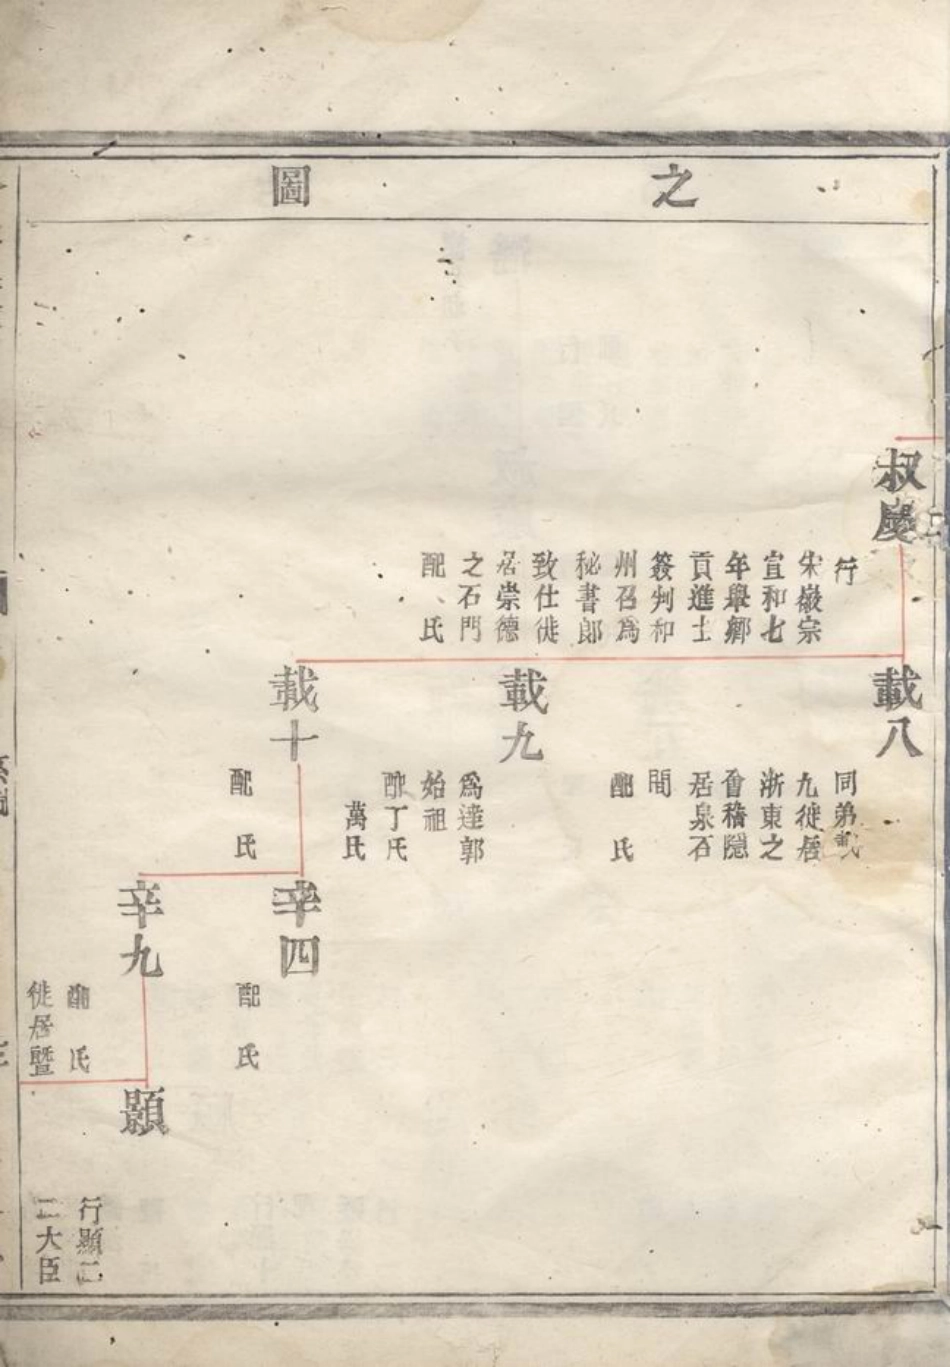 之
圖
叔慶
行
宋徽宗
宣和七
年舉鄉
貢進士
簽判和
州召爲
秘書郎
致仕徙
居崇德
之石門
配氏
載八
同弟載
九徙居
浙東之
會稽隱
居泉石
間
配氏
載九
爲達郭
始祖
配丁氏
萬氏
載十
配氏
辛四
配氏
辛九
配氏
徙居暨
顯
行顯二
二大臣